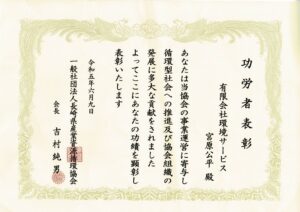 功労者表彰
有限会社環境サービス
宮原公平 殿
あなたは当協会の事業運営に寄与し
循環型社会への推進及び協会組織の
発展に多大な貢献をされました
よってここにあなたの功績を顕彰し
表彰いたします
令和五年六月九日
一般社団法人長崎県産業資源循環協会
会長 吉村純男